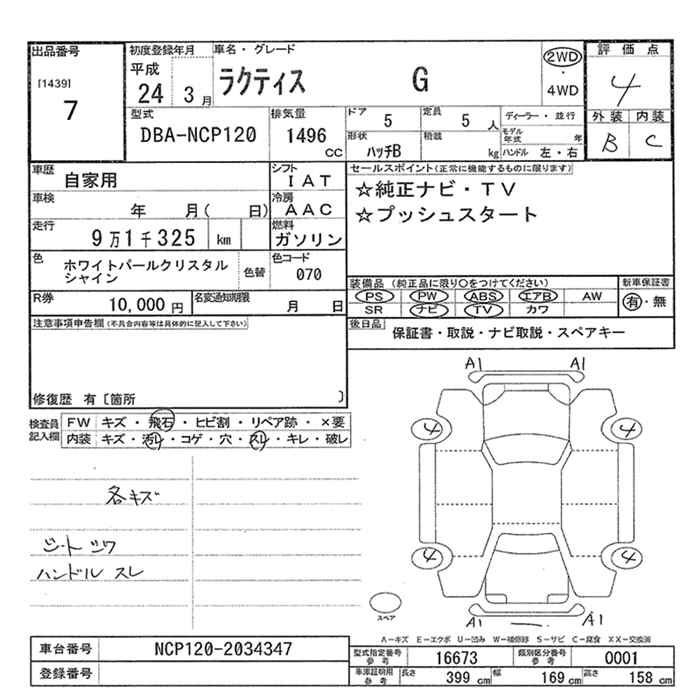 出品番号
[1439]
7
初度登録年月
平成
24 3月
車名・グレード
ラクティス G
2WD
・
4WD
評価点
4
外装 内装
B C
型式
DBA-NCP120
排気量
1496
CC
ドア 5
定員 5 人
形状 ハッチB
積載 kg
ディーラー・並行
モデル年式 年
ハンドル 左・右
車歴
自家用
シフト
IAT
車検
年 月( 日)
冷房
AAC
走行
9万1千325 km
燃料
ガソリン
色
ホワイトパールクリスタル
シャイン
色替
色コード
070
R券 10,000円
名変通知期限 月 日
セールスポイント(正常に機能するものに限ります)
☆純正ナビ・TV
☆プッシュスタート
装備品(純正品に限り○をつけてください)
PS PW ABS エアB AW
SR ナビ TV カワ
新車保証書
有・無
後日品
保証書・取説・ナビ取説・スペアキー
注意事項申告欄(不具合内容等は具体的に記入して下さい)
修復歴 有〔箇所 〕
検査員
記入欄
FW キズ・飛石・ヒビ割・リペア跡・×要
内装 キズ・汚レ・コゲ・穴・スレ・キレ・破レ
各キズ
シート シワ
ハンドル スレ
A1 A1
4 4
4 4
A1 A1
スペア
A-キズ E-エクボ U-凹み W-補修跡 S-サビ C-腐食 XX-交換済
車台番号 NCP120-2034347
登録番号
型式指定番号
参考
16673
類別区分番号
参考
0001
車庫証明用
参考
長さ 399 cm
幅 169 cm
高さ 158 cm